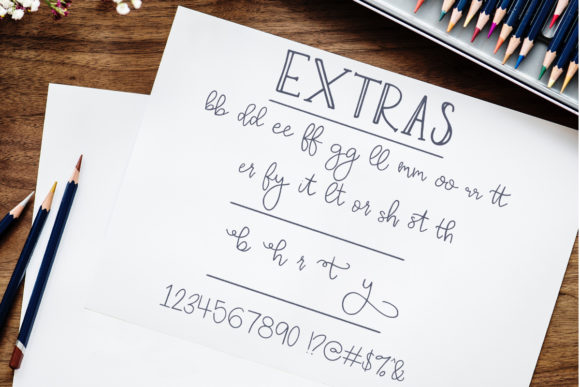 EXTRAS
bb dd ee ff gg ll mm oo rr tt
er fy it lt or sh st th
b h r t y
1234567890 !?@#$%&